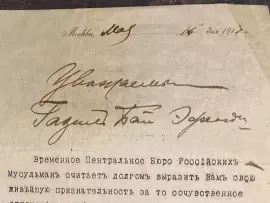 Москва, Мая 16" дня 1917 г.
Уважаемый
Бай Эфенди
Временное Центральное Бюро Российских
Мусульман считает долгом выразить Вам свою
живѣйшую признательность за то сочувственное